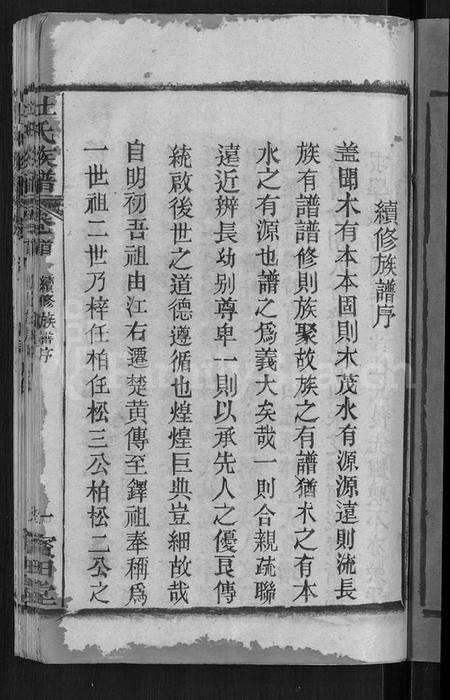 續修族譜序
蓋聞木有本本固則木茂水有源源遠則流長
族有譜譜修則族聚故族之有譜猶木之有本
水之有源也譜之爲義大矣哉一則合親疏聯
遠近辨長幼别尊卑一則以承先人之優良傳
統啟後世之道德遵循也煌煌巨典豈細故哉
自明初吾祖由江右遷楚黄傳至鐸祖奉稱爲
一世祖二世乃梓任柏任松三公柏松二公之
氏族譜
續修族譜序
一